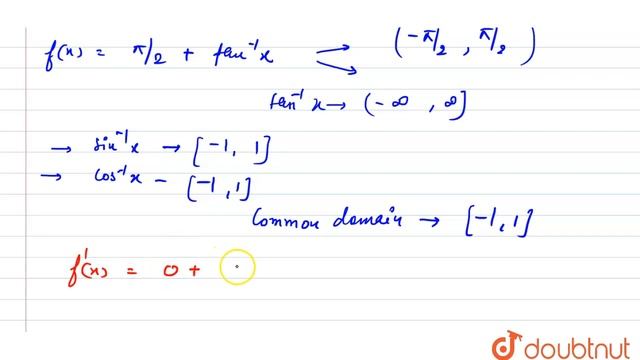 f(x) = π/2 + tan⁻¹x → (-π/2, π/2)
→
tan⁻¹ x → (-∞, ∞]
→ sin⁻¹x → [-1, 1]
→ cos⁻¹x - [-1, 1]
Common domain → [-1, 1]
f'(x) = 0 +
doubtnut